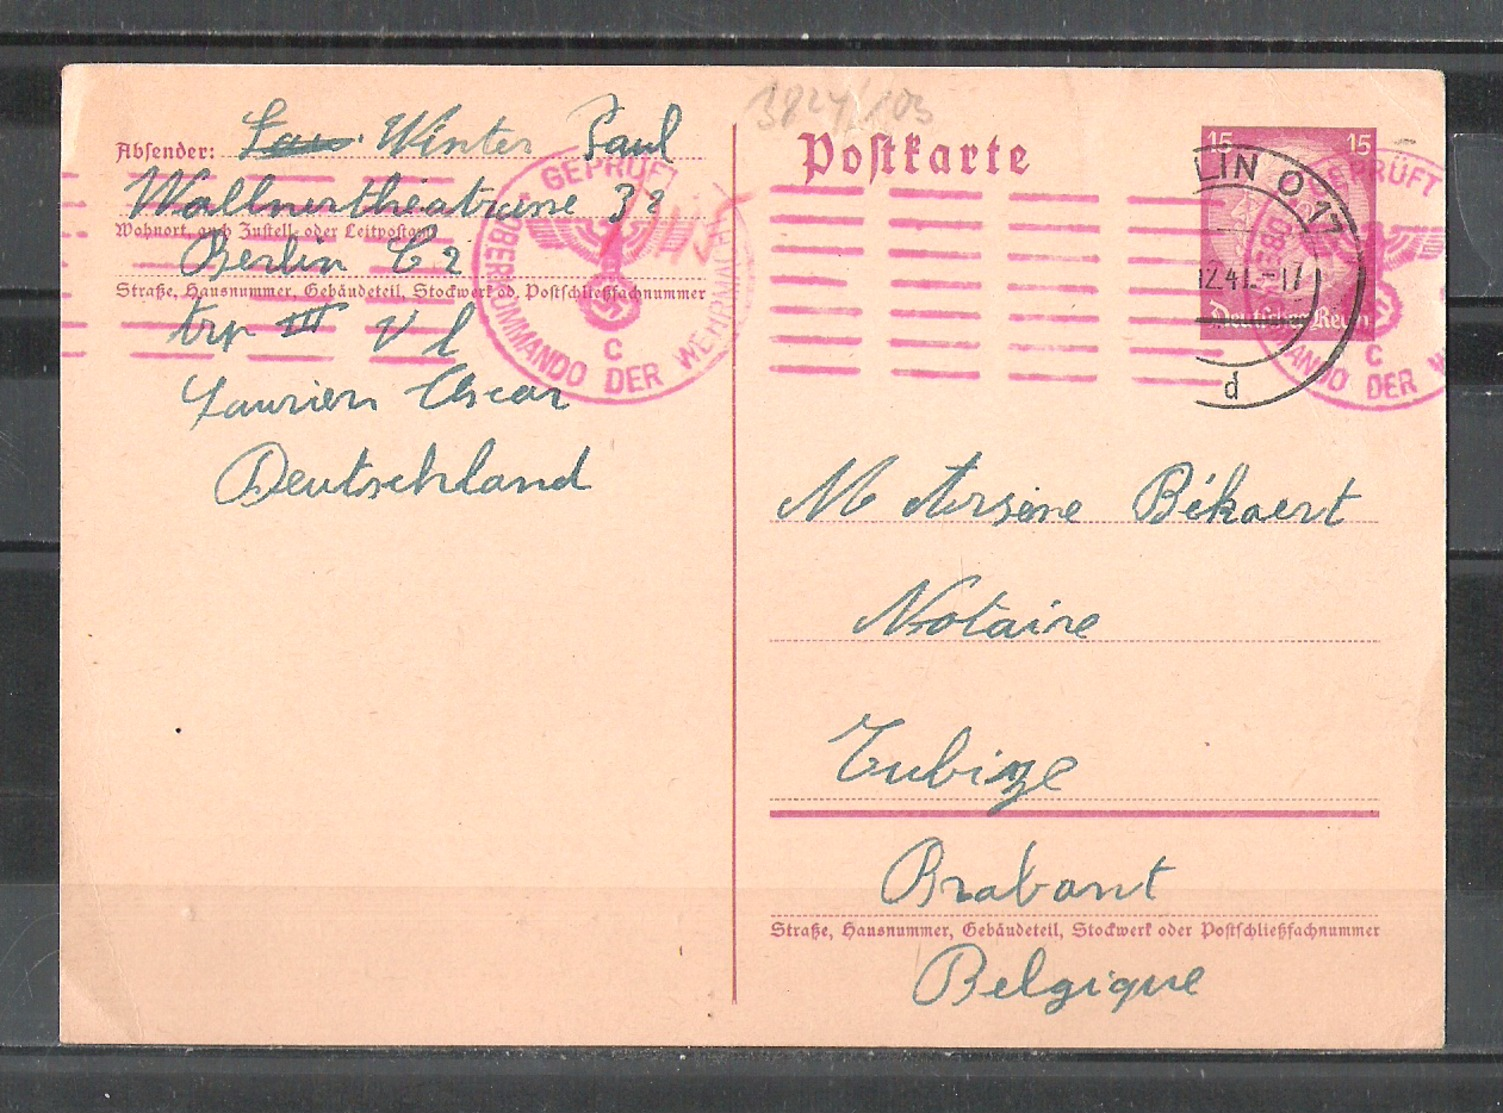 3824/103
Absender: Winter Paul
Wallnertheatrasse 32
Wohnort, auch Zustell- oder Leitpostamt
Berlin C 2
Straße, Hausnummer, Gebäudeteil, Stockwerk od. Postschließfachnummer
trp III v l
Laurien Oscar
Deutschland
GEPRÜFT
OBERKOMMANDO DER WEHRMACHT
C
Postkarte
15 15
Deutsches Reich
LIN O 17
12.41.-17
d
GEPRÜFT
OBER
MANDO DER W
C
M Arsène Békaert
Notaire
Tubize
Brabant
Straße, Hausnummer, Gebäudeteil, Stockwerk oder Postschließfachnummer
Belgique